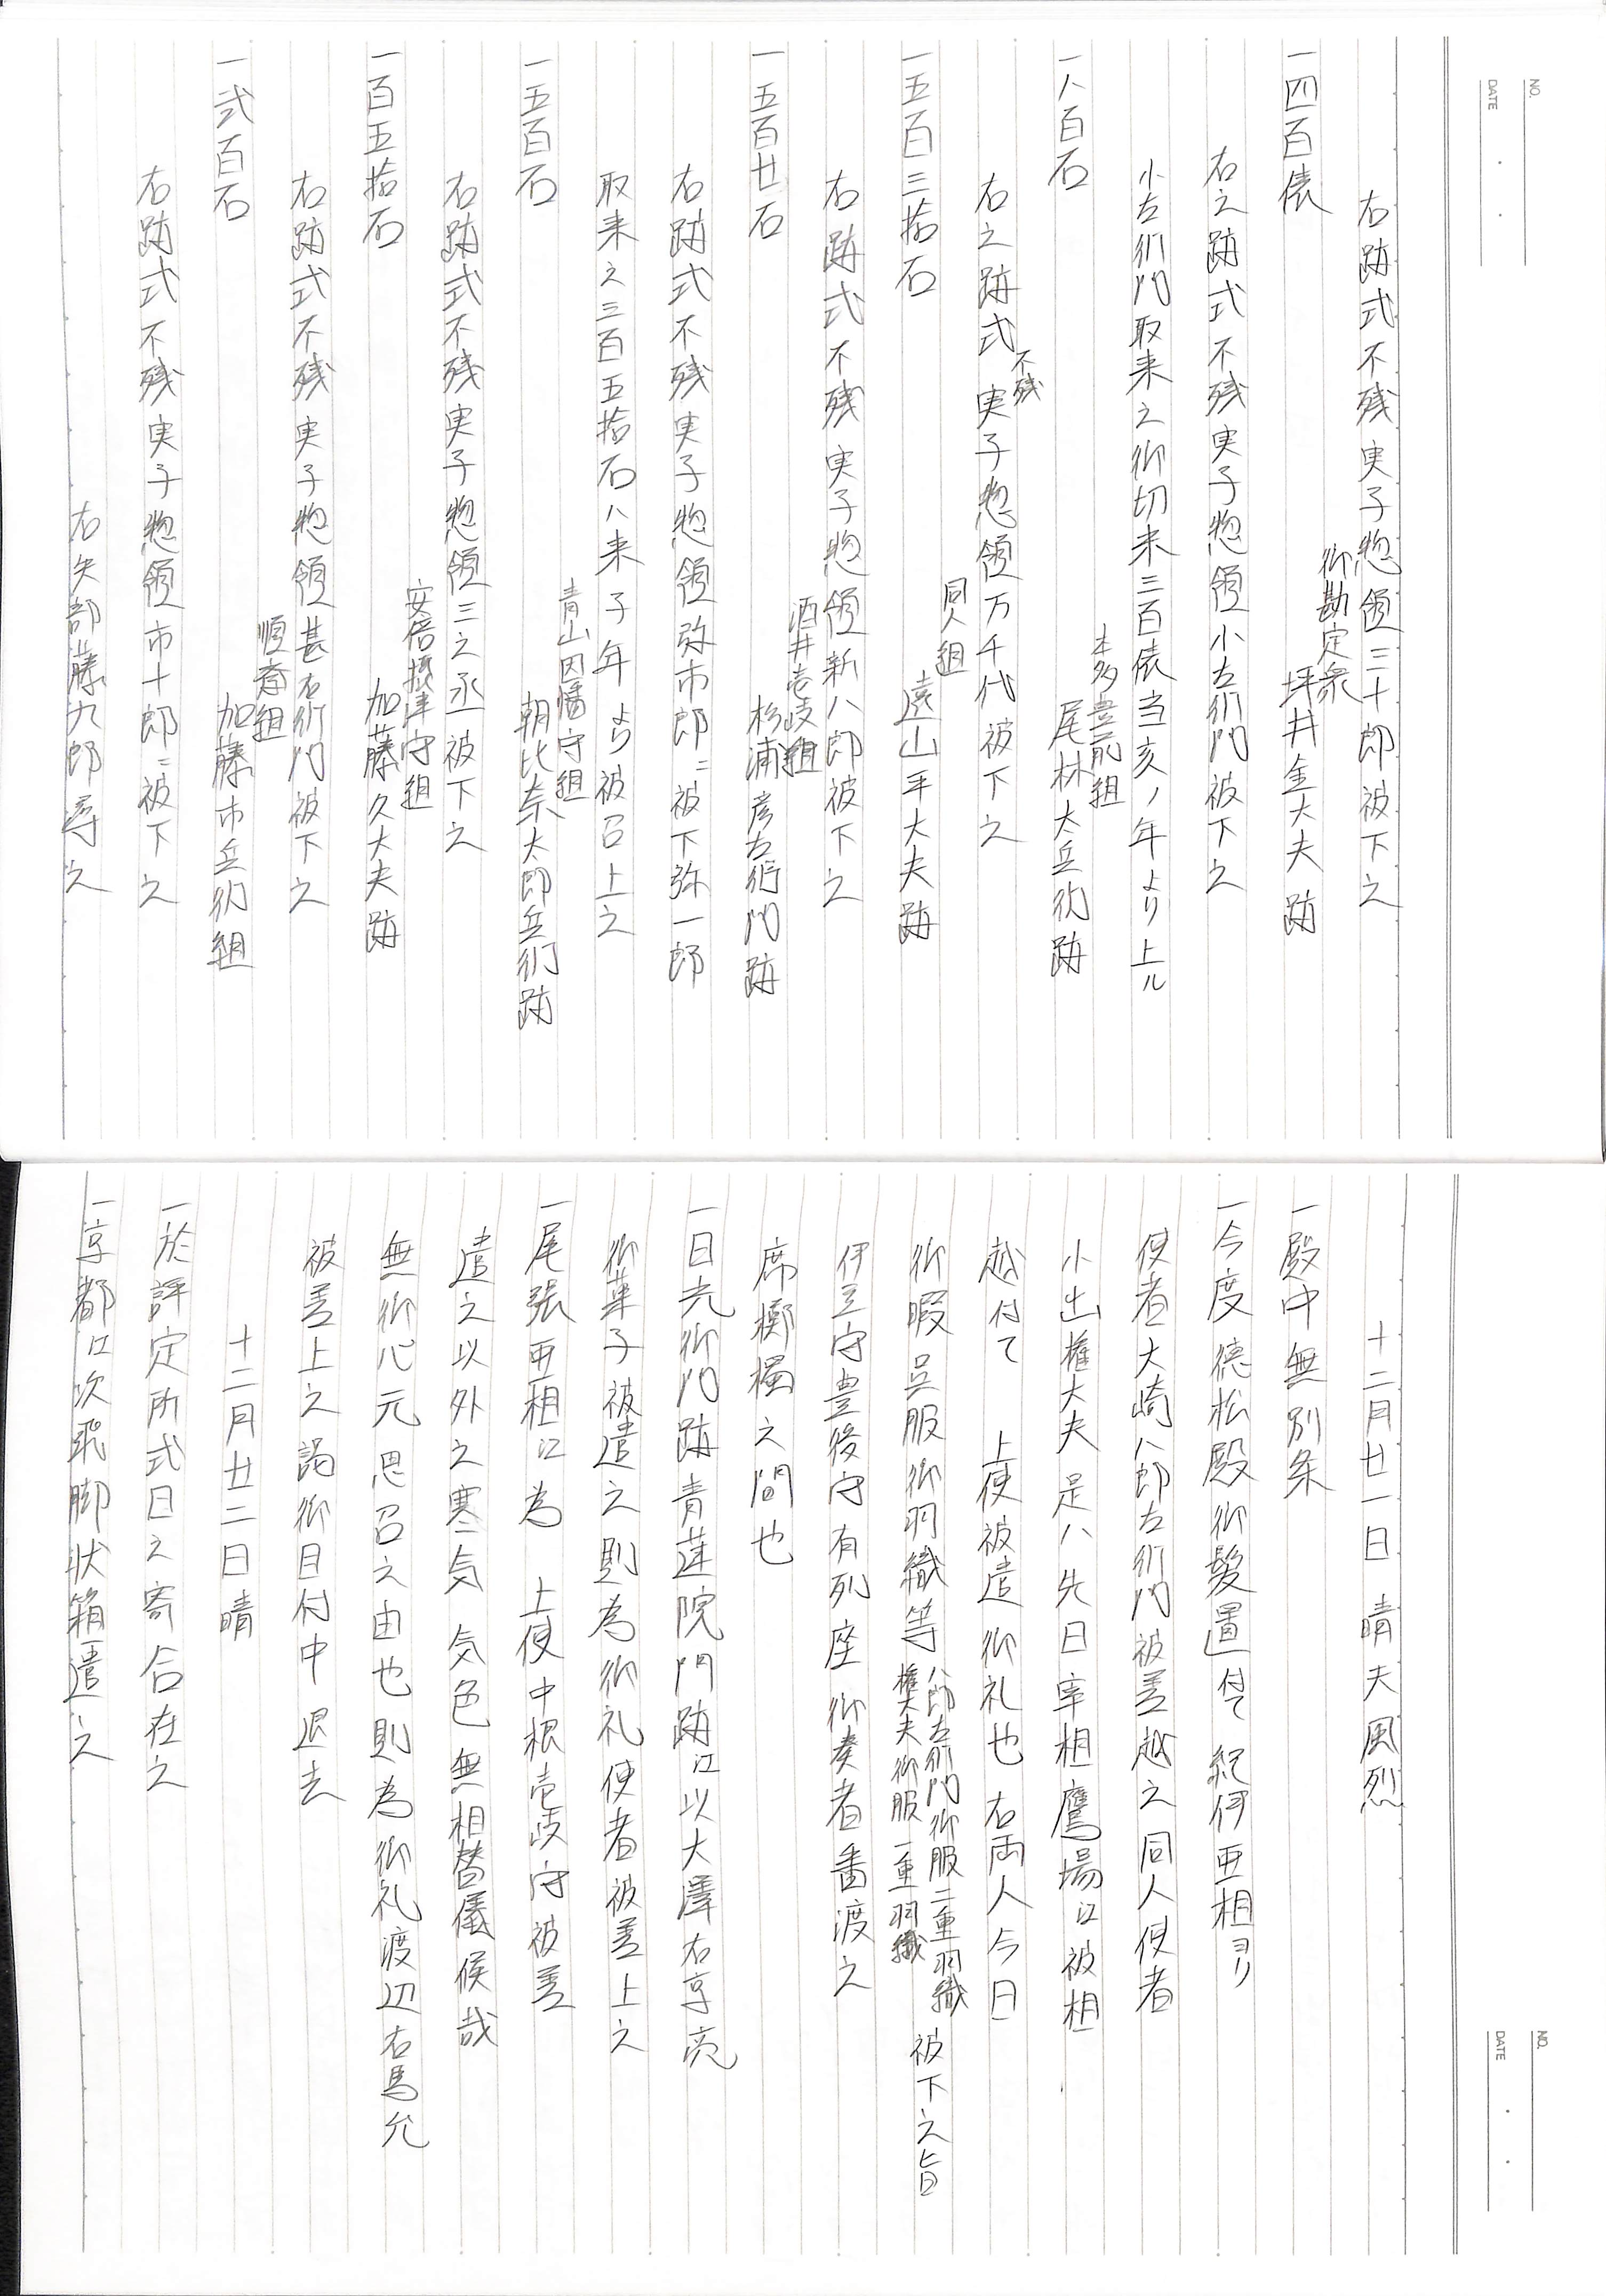 NO.
DATE
右跡式不残実子惣領三十郎被下之
御勘定衆
一四百俵 坪井金大夫跡
右之跡式不残実子惣領小左衛門被下之
小左衛門取来之御切米三百俵当亥ノ年より上ル
本多豊前組
一八百石 尾林太兵衛跡
右之跡式不残実子惣領万千代被下之
同人組
一五百三拾石 遠山平大夫跡
右跡式不残実子惣領新八郎被下之
酒井壱岐組
一五百廿石 杉浦彦左衛門跡
右跡式不残実子惣領弥市郎ニ被下弥一郎
取来之三百五拾石ハ来子年より被召上之
青山因幡守組
一五百石 朝比奈太郎兵衛跡
右跡式不残実子惣領三之丞被下之
安倍摂津守組
一百五拾石 加藤久大夫跡
右跡式不残実子惣領甚右衛門被下之
順斎組
一弐百石 加藤市兵衛組
右跡式不残実子惣領市十郎ニ被下之
右矢部藤九郎尋之
NO.
DATE
十二月廿一日 晴天風烈
一殿中無別条
一今度徳松殿御髪置付て 紀伊亜相ヨリ
使者大崎八郎左衛門被差越之同人使者
小出権大夫是ハ先日宰相鷹場江被相
越付て 上使被遣御礼也右両人今日
御暇呉服御羽織等 八郎左衛門御服二重羽織 権大夫御服一重羽織 被下之旨
伊豆守豊後守有列座御奏者番渡之
席檳榔之間也
一日光御門跡青蓮院門跡江以大澤右京亮
御菓子被遣之則為御礼使者被差上之
一尾張亜相江為 上使中根壱岐守被差
遣之以外之寒気気色無相替儀候哉
無御心元思召之由也則為御礼渡辺右馬允
被差上之謁御目付中退去
十二月廿二日晴
一於評定所式日之寄合在之
一京都江次飛脚状箱遣之